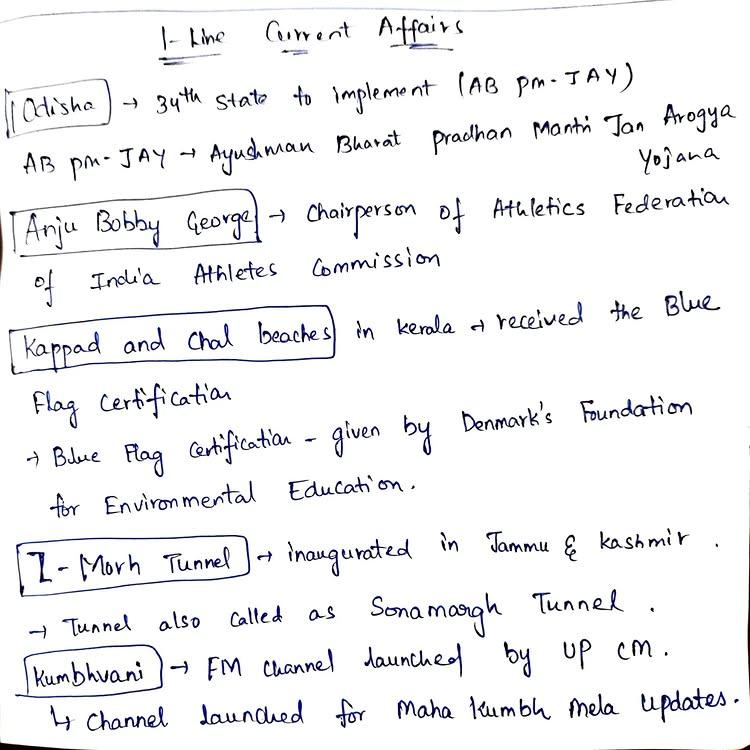 1-Line Current Affairs
Odisha → 34th State to implement (AB PM-JAY)
AB PM-JAY → Ayushman Bharat Pradhan Mantri Jan Arogya
Yojana
Anju Bobby George → Chairperson of Athletics Federation
of India Athletes Commission
Kappad and Chal beaches in Kerala → received the Blue
Flag Certification
→ Blue Flag Certification - given by Denmark's Foundation
for Environmental Education.
Z-Morh Tunnel → inaugurated in Jammu & Kashmir.
→ Tunnel also called as Sonamargh Tunnel.
Kumbhvani → FM channel launched by UP CM.
↳ Channel launched for Maha Kumbh Mela updates.